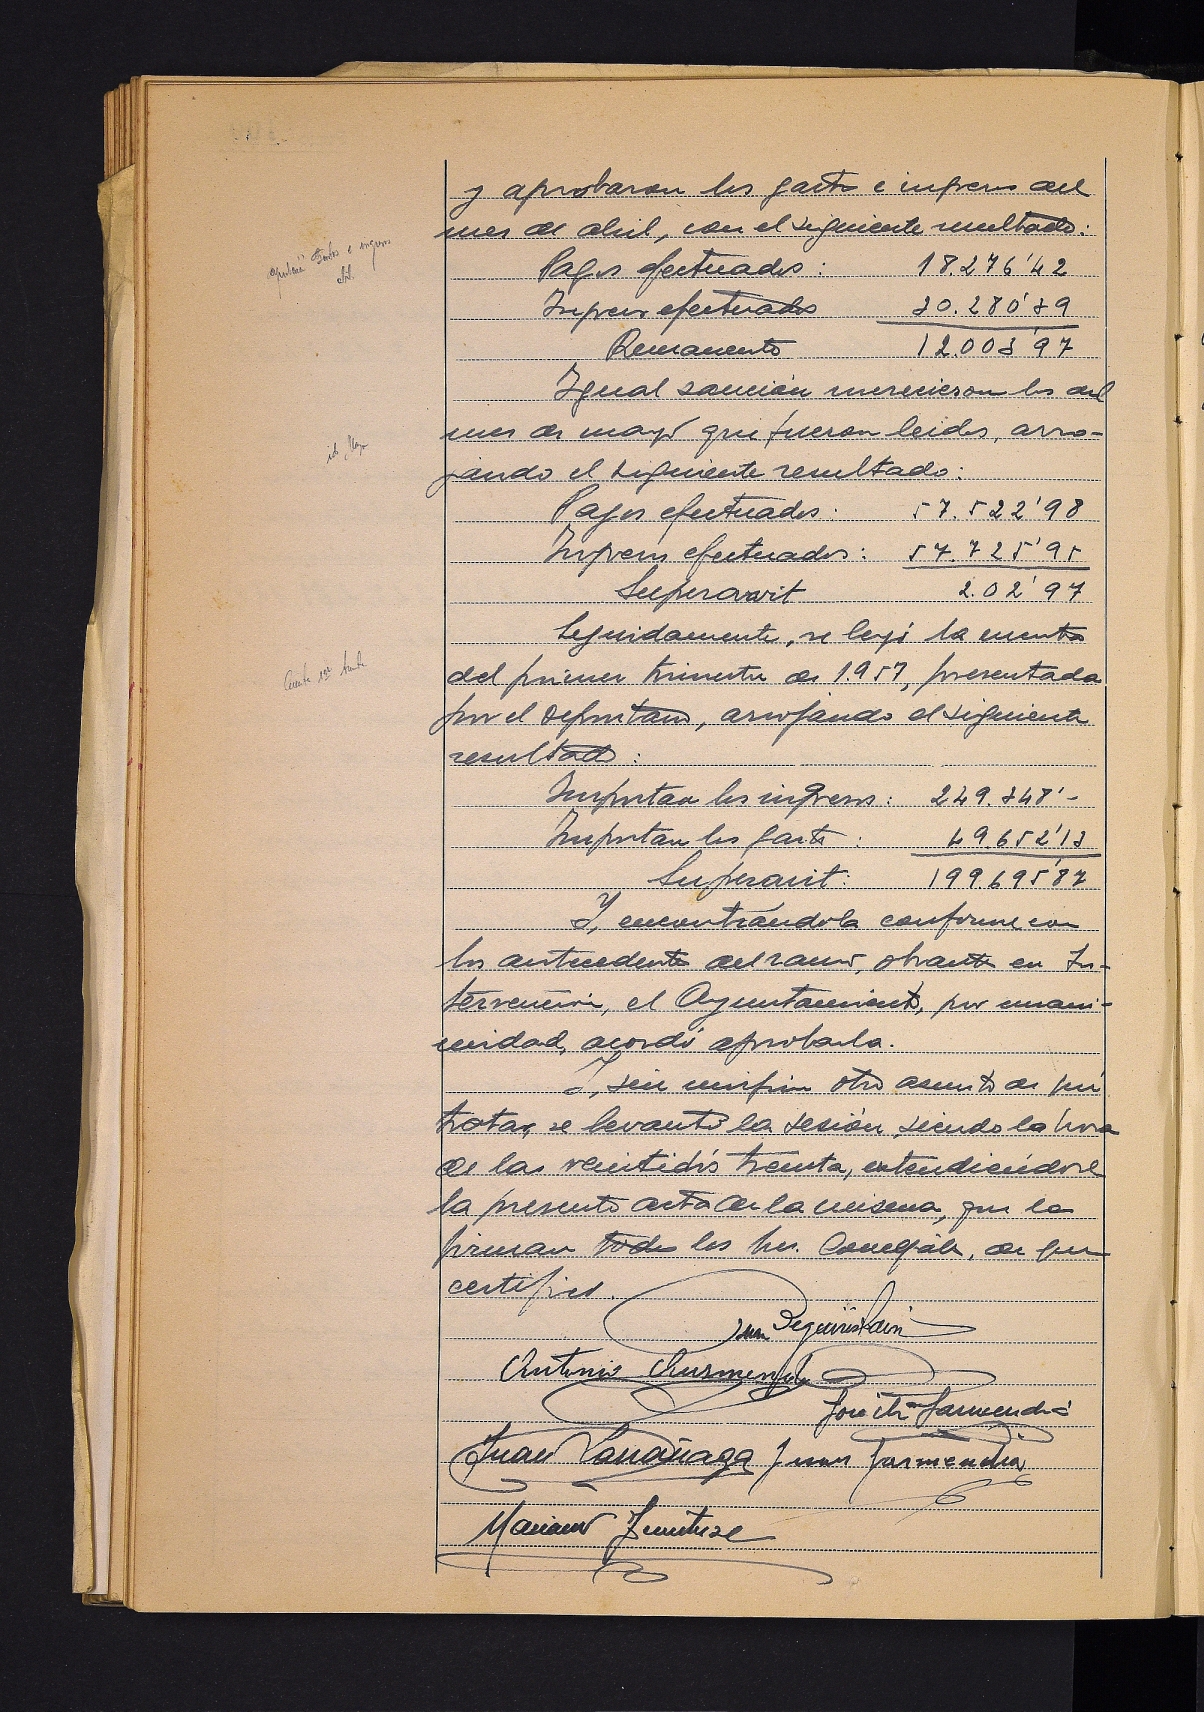 y aprobaron los gastos e ingresos del
mes de abril, con el siguiente resultado:
Pagos efectuados: 18.276'42
Ingresos efectuados 30.280'39
Remanente 12.003'97
Igual sanción merecieron los del
mes de mayo que fueron leidos, arro-
jando el siguiente resultado:
Pagos efectuados: 57.522'98
Ingresos efectuados: 57.725'95
Superavit 2.02'97
Seguidamente, se leyó la cuenta
del primer trimestre de 1.957, presentada
por el depositario, arrojando el siguiente
resultado:
Importan los ingresos: 249.348'-
Importan los gastos: 49.652'13
Superavit: 199.695'87
Y, encontrándola conforme con
los antecedentes del ramo, obrantes en In-
tervención, el Ayuntamiento, por unani-
midad, acordó aprobarla.
Y, sin ningún otro asunto de que
tratar, se levantó la sesión, siendo la hora
de las veintidós treinta, extendiéndose
la presente acta de la misma, que la
firman todos los Sres. Concejales, de que
certifico.
Juan Beguiristain
Antonio
José Garmendia
Juan Larrañaga Juan Garmendia
Mariano
Gastos e ingresos
id. Mayo
Cuenta 1er